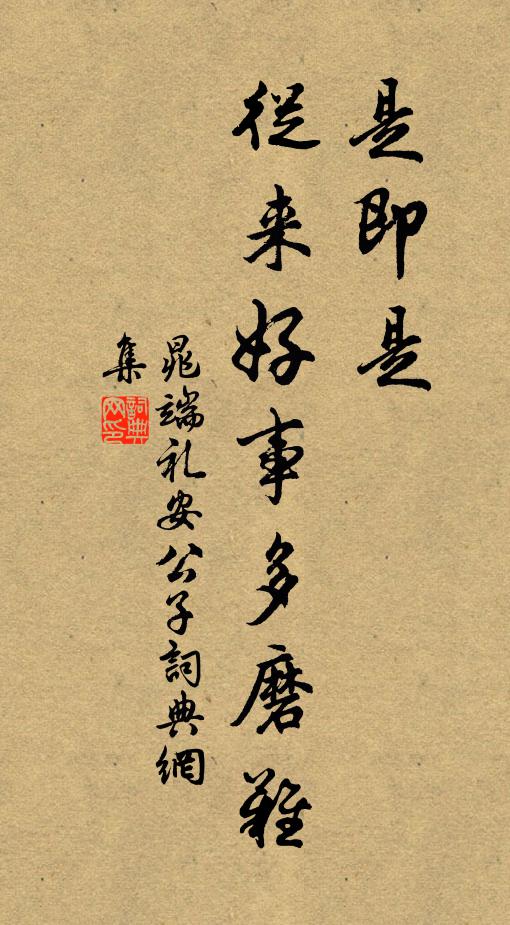 是即是
從来好事多磨難
晁端礼安公子詞典網
集
詞典
网印